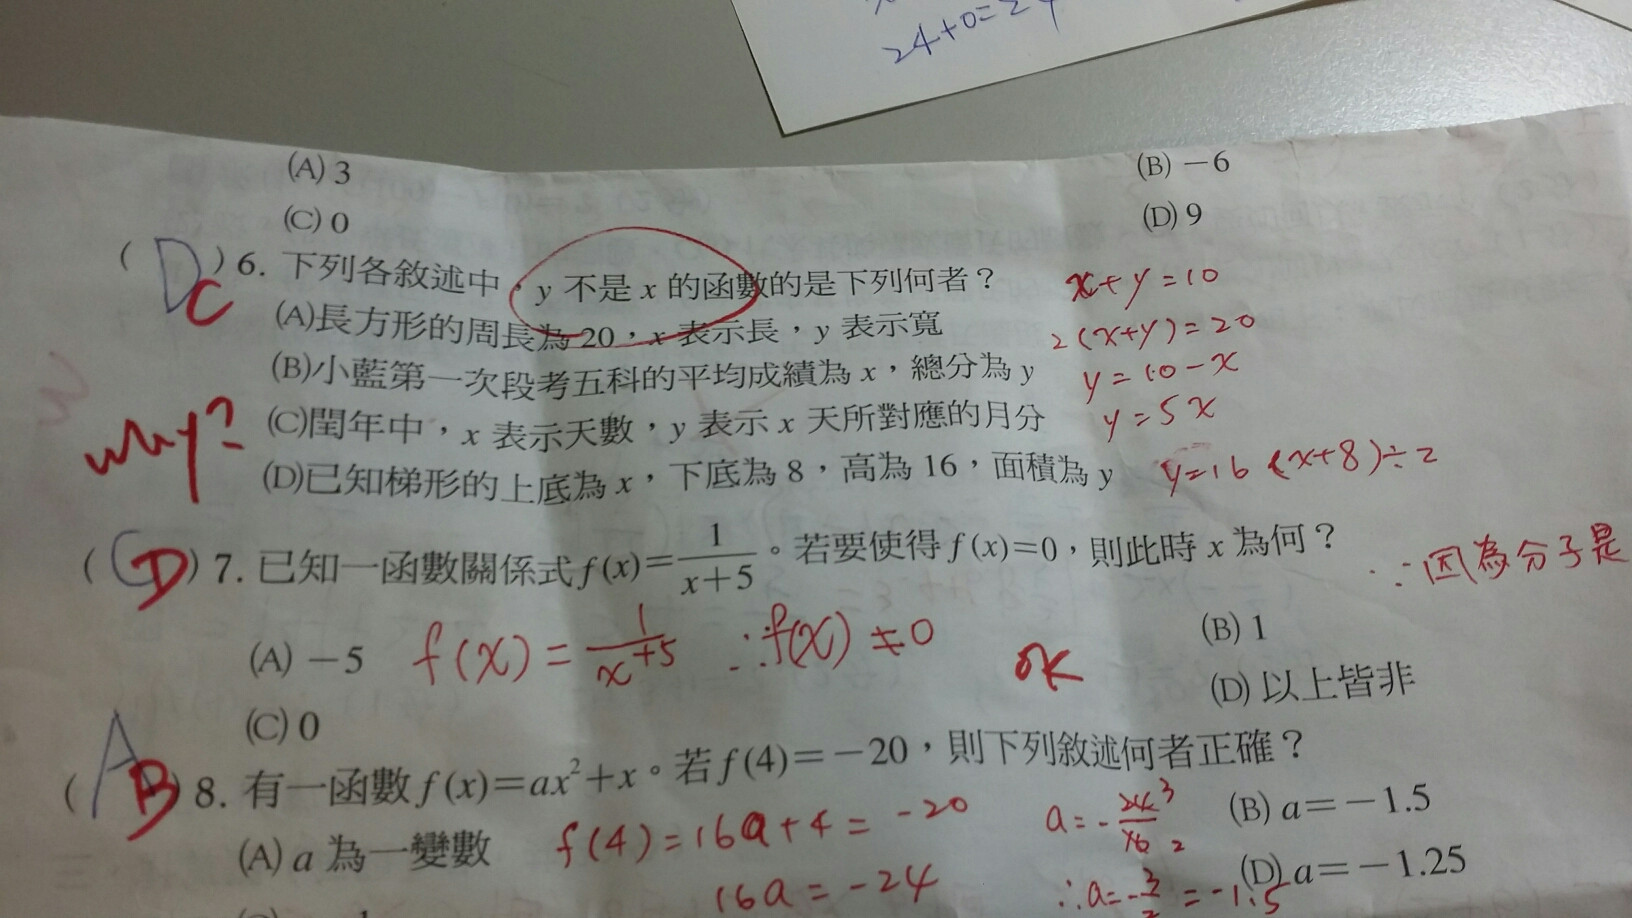 24+0=24
(A) 3
(B) －6
(C) 0
(D) 9
( D C )6. 下列各敘述中，y 不是 x 的函數的是下列何者？
x+y=10
(A)長方形的周長為 20，x 表示長，y 表示寬
2(x+y)=20
(B)小藍第一次段考五科的平均成績為 x，總分為 y
y=10-x
(C)閏年中，x 表示天數，y 表示 x 天所對應的月分
y=5x
why?
(D)已知梯形的上底為 x，下底為 8，高為 16，面積為 y
y=16(x+8)÷2
( C D ) 7. 已知一函數關係式 f(x)=1/(x+5)。若要使得 f(x)=0，則此時 x 為何？
∵因為分子是
(A) －5
f(x)=1/(x+5) ∴f(x)≠0
OK
(B) 1
(C) 0
(D) 以上皆非
( A B ) 8. 有一函數 f(x)=ax²+x。若 f(4)=－20，則下列敘述何者正確？
(A) a 為一變數
f(4)=16a+4=-20
(B) a=－1.5
16a=-24
(D) a=－1.25